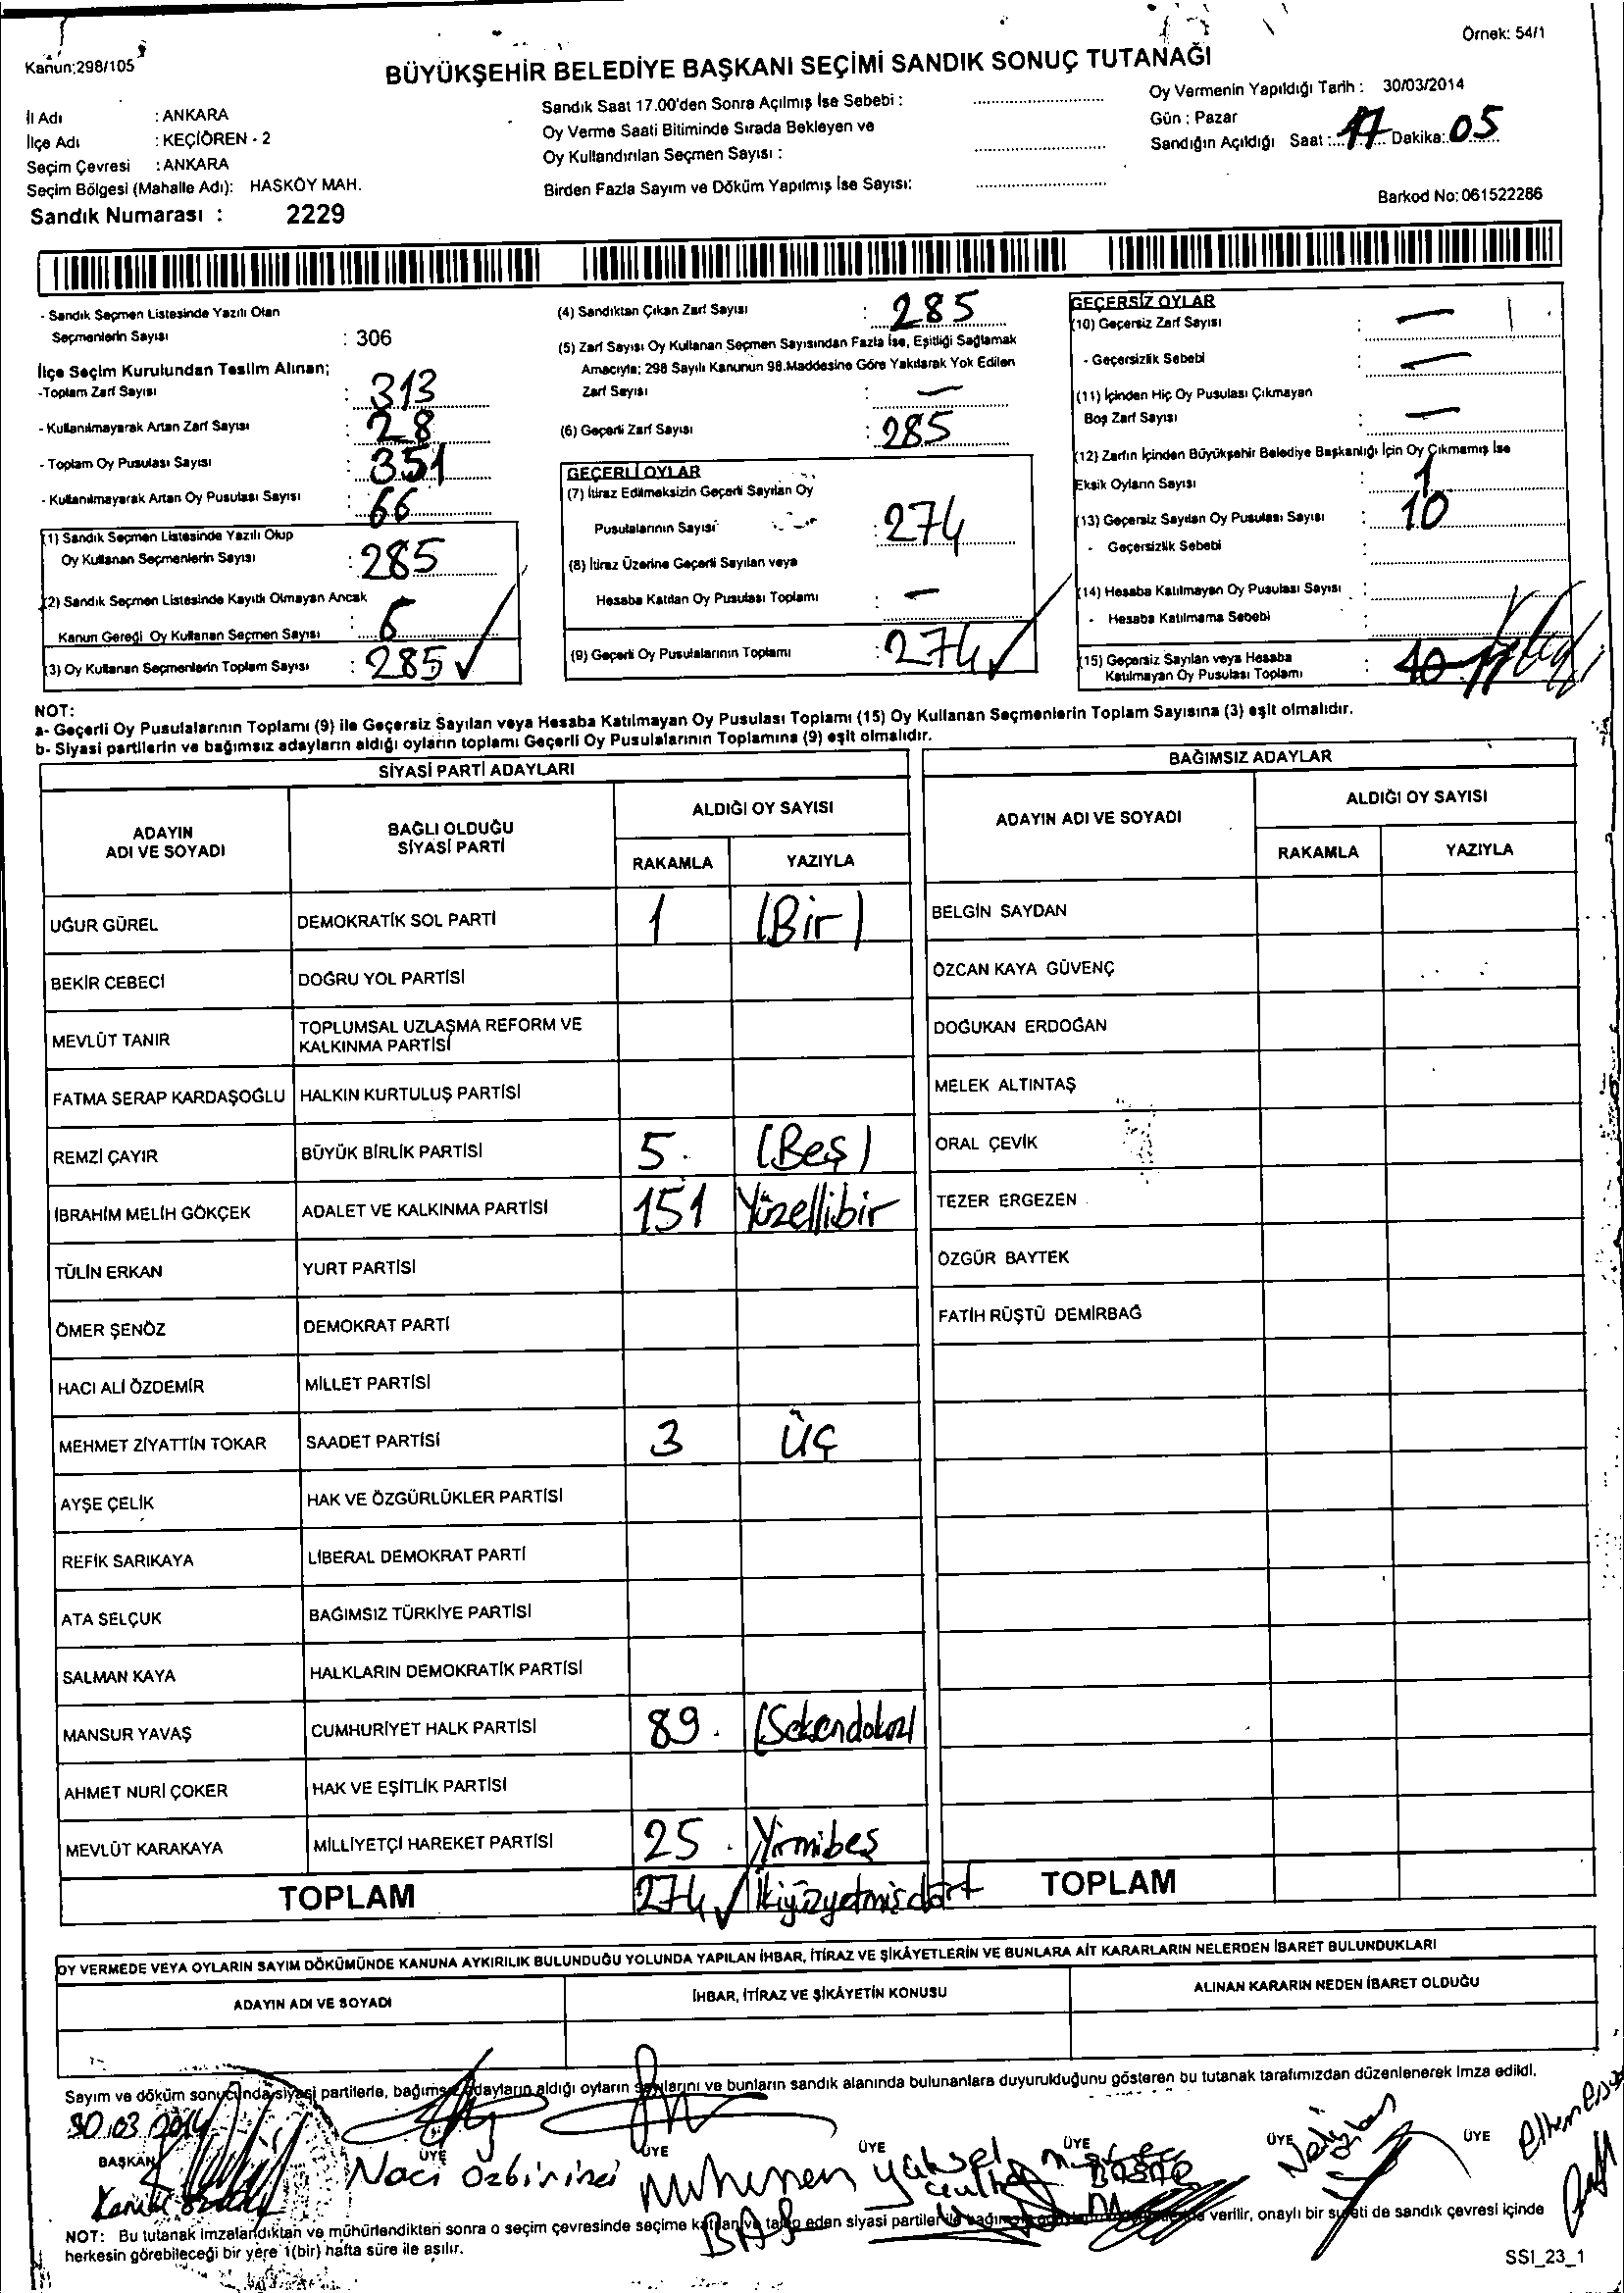 Örnek: 54/1
Kanun;298/105
BÜYÜKŞEHİR BELEDİYE BAŞKANI SEÇİMİ SANDIK SONUÇ TUTANAĞI
İl Adı : ANKARA
İlçe Adı : KEÇİÖREN - 2
Seçim Çevresi : ANKARA
Seçim Bölgesi (Mahalle Adı): HASKÖY MAH.
Sandık Numarası : 2229
Sandık Saat 17.00'den Sonra Açılmış İse Sebebi :
Oy Verme Saati Bitiminde Sırada Bekleyen ve
Oy Kullandırılan Seçmen Sayısı :
Birden Fazla Sayım ve Döküm Yapılmış İse Sayısı:
Oy Vermenin Yapıldığı Tarih : 30/03/2014
Gün : Pazar
Sandığın Açıldığı Saat : 17 Dakika: 05
Barkod No: 061522286
- Sandık Seçmen Listesinde Yazılı Olan
Seçmenlerin Sayısı : 306
İlçe Seçim Kurulundan Teslim Alınan;
-Toplam Zarf Sayısı : 313
- Kullanılmayarak Artan Zarf Sayısı : 28
- Toplam Oy Pusulası Sayısı : 351
- Kullanılmayarak Artan Oy Pusulası Sayısı : 66
(1) Sandık Seçmen Listesinde Yazılı Olup
Oy Kullanan Seçmenlerin Sayısı : 285
(2) Sandık Seçmen Listesinde Kayıtlı Olmayan Ancak
Kanun Gereği Oy Kullanan Seçmen Sayısı :
(3) Oy Kullanan Seçmenlerin Toplam Sayısı : 285 ✓
(4) Sandıktan Çıkan Zarf Sayısı : 285
(5) Zarf Sayısı Oy Kullanan Seçmen Sayısından Fazla İse, Eşitliği Sağlamak
Amacıyla; 298 Sayılı Kanunun 98.Maddesine Göre Yakılarak Yok Edilen
Zarf Sayısı : —
(6) Geçerli Zarf Sayısı : 285
GEÇERLİ OYLAR
(7) İtiraz Edilmeksizin Geçerli Sayılan Oy
Pusulalarının Sayısı : 274
(8) İtiraz Üzerine Geçerli Sayılan veya
Hesaba Katılan Oy Pusulası Toplamı : —
(9) Geçerli Oy Pusulalarının Toplamı : 274 ✓
GEÇERSİZ OYLAR
(10) Geçersiz Zarf Sayısı : —
- Geçersizlik Sebebi : —
(11) İçinden Hiç Oy Pusulası Çıkmayan
Boş Zarf Sayısı : —
(12) Zarfın İçinden Büyükşehir Belediye Başkanlığı İçin Oy Çıkmamış İse
Eksik Oyların Sayısı : 1
(13) Geçersiz Sayılan Oy Pusulası Sayısı : 10
- Geçersizlik Sebebi :
(14) Hesaba Katılmayan Oy Pusulası Sayısı :
- Hesaba Katılmama Sebebi
(15) Geçersiz Sayılan veya Hesaba
Katılmayan Oy Pusulası Toplamı : 10
NOT:
a- Geçerli Oy Pusulalarının Toplamı (9) ile Geçersiz Sayılan veya Hesaba Katılmayan Oy Pusulası Toplamı (15) Oy Kullanan Seçmenlerin Toplam Sayısına (3) eşit olmalıdır.
b- Siyasi partilerin ve bağımsız adayların aldığı oyların toplamı Geçerli Oy Pusulalarının Toplamına (9) eşit olmalıdır.
SİYASİ PARTİ ADAYLARI
ADAYIN ADI VE SOYADI
BAĞLI OLDUĞU SİYASİ PARTİ
ALDIĞI OY SAYISI
RAKAMLA YAZIYLA
UĞUR GÜREL DEMOKRATİK SOL PARTİ 1 (Bir)
BEKİR CEBECİ DOĞRU YOL PARTİSİ
MEVLÜT TANIR TOPLUMSAL UZLAŞMA REFORM VE
KALKINMA PARTİSİ
FATMA SERAP KARDAŞOĞLU HALKIN KURTULUŞ PARTİSİ
REMZİ ÇAYIR BÜYÜK BİRLİK PARTİSİ 5 (Beş)
İBRAHİM MELİH GÖKÇEK ADALET VE KALKINMA PARTİSİ 151 Yüzellibir
TÜLİN ERKAN YURT PARTİSİ
ÖMER ŞENÖZ DEMOKRAT PARTİ
HACI ALİ ÖZDEMİR MİLLET PARTİSİ
MEHMET ZİYATTİN TOKAR SAADET PARTİSİ 3 Üç
AYŞE ÇELİK HAK VE ÖZGÜRLÜKLER PARTİSİ
REFİK SARIKAYA LİBERAL DEMOKRAT PARTİ
ATA SELÇUK BAĞIMSIZ TÜRKİYE PARTİSİ
SALMAN KAYA HALKLARIN DEMOKRATİK PARTİSİ
MANSUR YAVAŞ CUMHURİYET HALK PARTİSİ 89 (Seksendokuz)
AHMET NURİ ÇOKER HAK VE EŞİTLİK PARTİSİ
MEVLÜT KARAKAYA MİLLİYETÇİ HAREKET PARTİSİ 25 Yirmibeş
TOPLAM 274 ✓ İkiyüzyetmişdört
BAĞIMSIZ ADAYLAR
ADAYIN ADI VE SOYADI
ALDIĞI OY SAYISI
RAKAMLA YAZIYLA
BELGİN SAYDAN
ÖZCAN KAYA GÜVENÇ
DOĞUKAN ERDOĞAN
MELEK ALTINTAŞ
ORAL ÇEVİK
TEZER ERGEZEN
ÖZGÜR BAYTEK
FATİH RÜŞTÜ DEMİRBAĞ
TOPLAM
OY VERMEDE VEYA OYLARIN SAYIM DÖKÜMÜNDE KANUNA AYKIRILIK BULUNDUĞU YOLUNDA YAPILAN İHBAR, İTİRAZ VE ŞİKÂYETLERİN VE BUNLARA AİT KARARLARIN NELERDEN İBARET BULUNDUKLARI
ADAYIN ADI VE SOYADI
İHBAR, İTİRAZ VE ŞİKÂYETİN KONUSU
ALINAN KARARIN NEDEN İBARET OLDUĞU
Sayım ve döküm sonucunda siyasi partilerle, bağımsız adayların aldığı oyların sayılarını ve bunların sandık alanında bulunanlara duyurulduğunu gösteren bu tutanak tarafımızdan düzenlenerek imza edildi.
30.03.2014
BAŞKAN ÜYE ÜYE ÜYE ÜYE ÜYE ÜYE
Naci Özbirinci
yüksel
BAŞ
NOT: Bu tutanak imzalandıktan ve mühürlendikten sonra o seçim çevresinde seçime katılan ve talep eden siyasi partiler ile bağımsız verilir, onaylı bir sureti de sandık çevresi içinde
herkesin görebileceği bir yere 1(bir) hafta süre ile asılır.
SSI_23_1